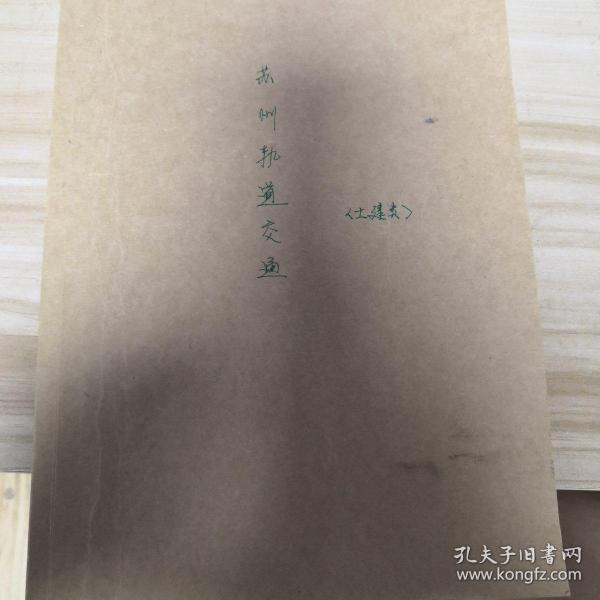 苏州轨道交通
〈土建类〉
孔夫子旧书网
www.kongfz.com